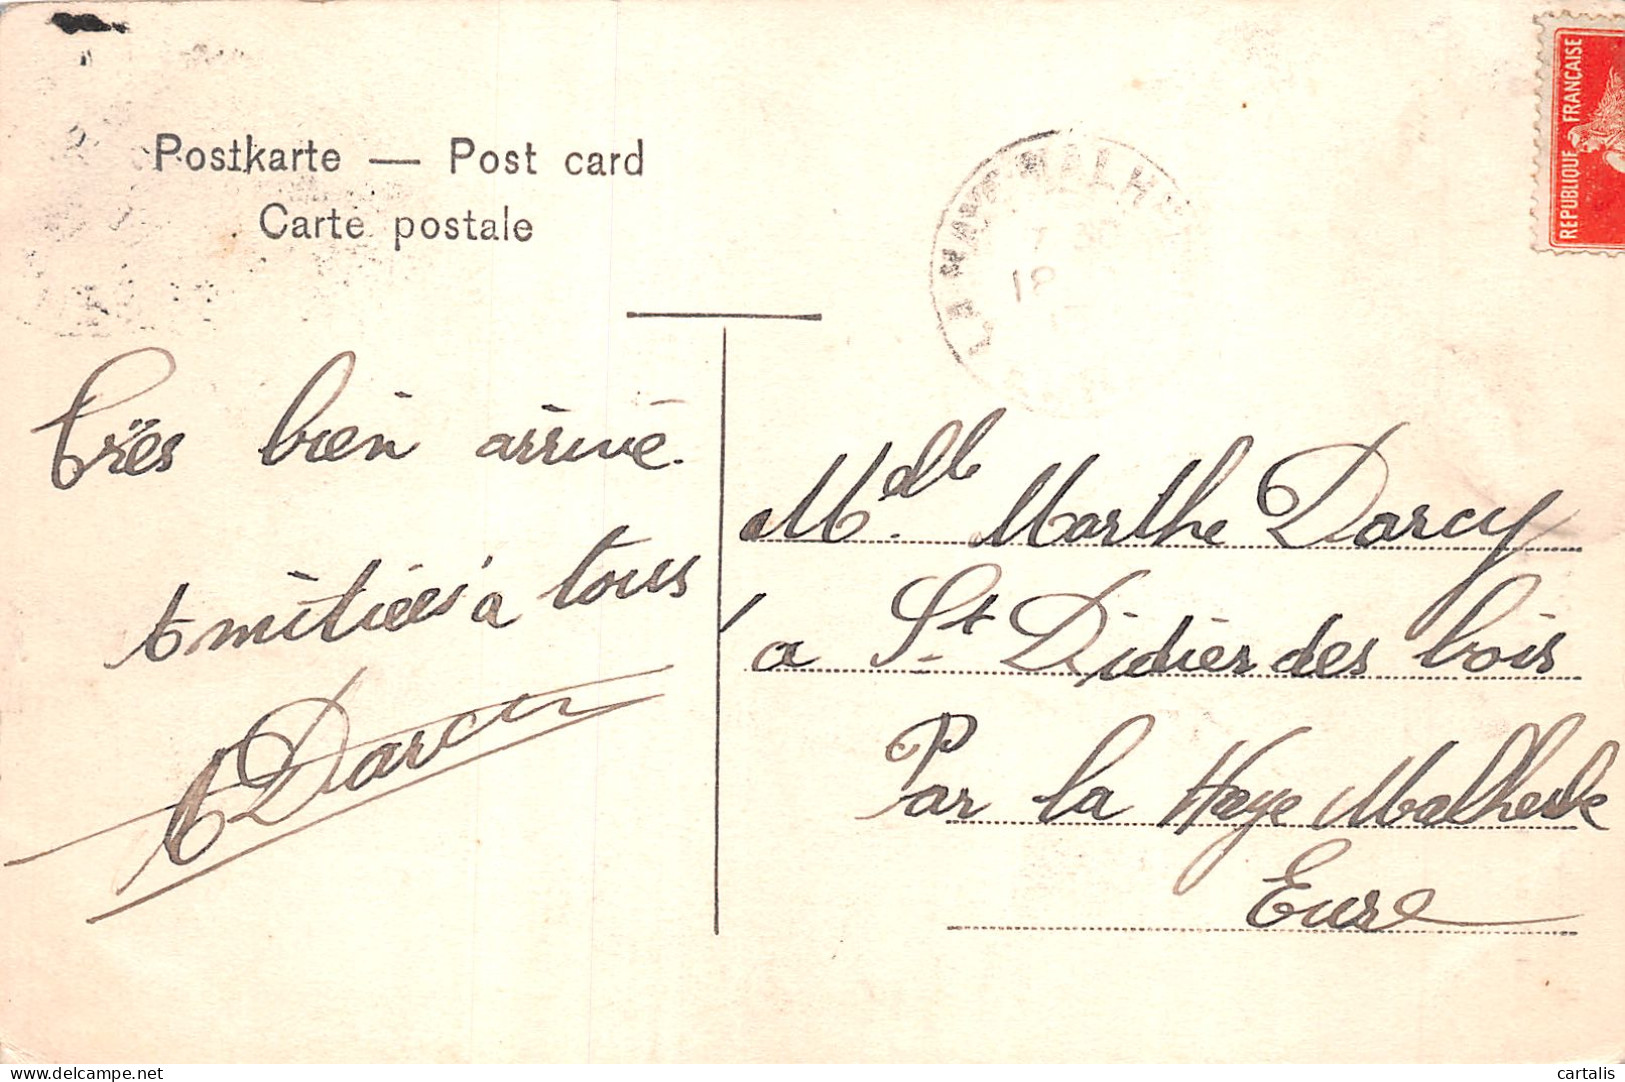 Postkarte — Post card
Carte postale
REPUBLIQUE FRANÇAISE
LA HAYE MALH
7 30
18
Très bien arrivé.
Amitiées à tous
Darcy
Mdlle. Marthe Darcy
à St Didier des bois
Par la Haye Malherbe
Eure
www.delcampe.net
cartalis